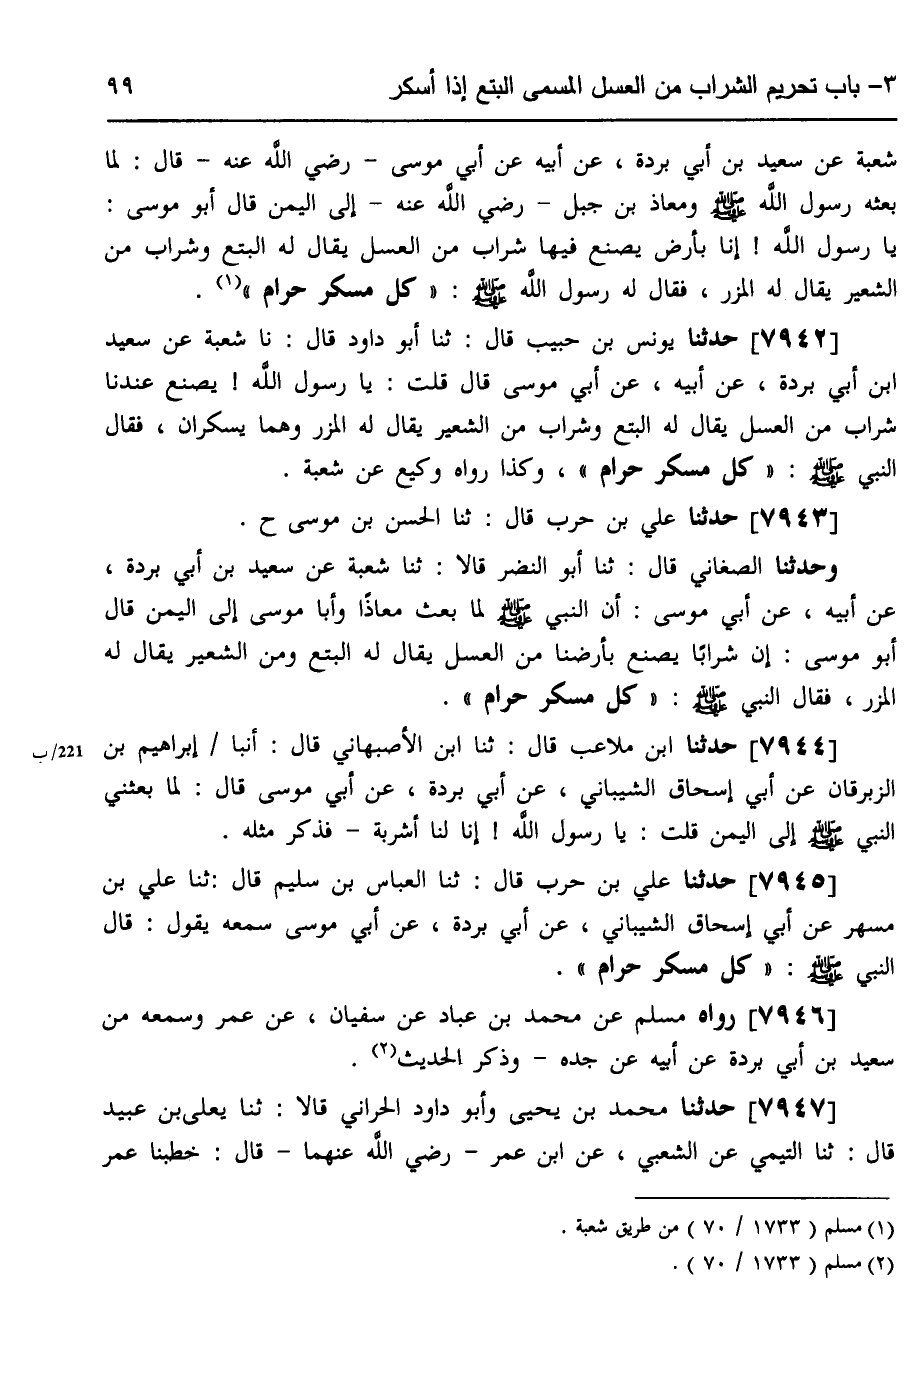 ٣- باب تحريم الشراب من العسل المسمى البتع إذا أسكر ٩٩
شعبة عن سعيد بن أبي بردة ، عن أبيه عن أبي موسى - رضي اللَّه عنه - قال : لما
بعثه رسول اللَّه ﷺ ومعاذ بن جبل - رضي اللَّه عنه - إلى اليمن قال أبو موسى :
يا رسول اللَّه ! إنا بأرض يصنع فيها شراب من العسل يقال له البتع وشراب من
الشعير يقال له المزر ، فقال له رسول اللَّه ﷺ : « كل مسكر حرام »(١) .
[٧٩٤٢] حدثنا يونس بن حبيب قال : ثنا أبو داود قال : نا شعبة عن سعيد
ابن أبي بردة ، عن أبيه ، عن أبي موسى قال قلت : يا رسول اللَّه ! يصنع عندنا
شراب من العسل يقال له البتع وشراب من الشعير يقال له المزر وهما يسكران ، فقال
النبي ﷺ : « كل مسكر حرام » ، وكذا رواه وكيع عن شعبة .
[٧٩٤٣] حدثنا علي بن حرب قال : ثنا الحسن بن موسى ح .
وحدثنا الصغاني قال : ثنا أبو النضر قالا : ثنا شعبة عن سعيد بن أبي بردة ،
عن أبيه ، عن أبي موسى : أن النبي ﷺ لما بعث معاذًا وأبا موسى إلى اليمن قال
أبو موسى : إن شرابًا يصنع بأرضنا من العسل يقال له البتع ومن الشعير يقال له
المزر ، فقال النبي ﷺ : « كل مسكر حرام » .
[٧٩٤٤] حدثنا ابن ملاعب قال : ثنا ابن الأصبهاني قال : أنبا / إبراهيم بن 221/ب
الزبرقان عن أبي إسحاق الشيباني ، عن أبي بردة ، عن أبي موسى قال : لما بعثني
النبي ﷺ إلى اليمن قلت : يا رسول اللَّه ! إنا لنا أشربة - فذكر مثله .
[٧٩٤٥] حدثنا علي بن حرب قال : ثنا العباس بن سليم قال :ثنا علي بن
مسهر عن أبي إسحاق الشيباني ، عن أبي بردة ، عن أبي موسى سمعه يقول : قال
النبي ﷺ : « كل مسكر حرام » .
[٧٩٤٦] رواه مسلم عن محمد بن عباد عن سفيان ، عن عمر وسمعه من
سعيد بن أبي بردة عن أبيه عن جده - وذكر الحديث(٢) .
[٧٩٤٧] حدثنا محمد بن يحيى وأبو داود الحراني قالا : ثنا يعلى بن عبيد
قال : ثنا التيمي عن الشعبي ، عن ابن عمر - رضي اللَّه عنهما - قال : خطبنا عمر
(١) مسلم ( ١٧٣٣ / ٧٠ ) من طريق شعبة .
(٢) مسلم ( ١٧٣٣ / ٧٠ ) .